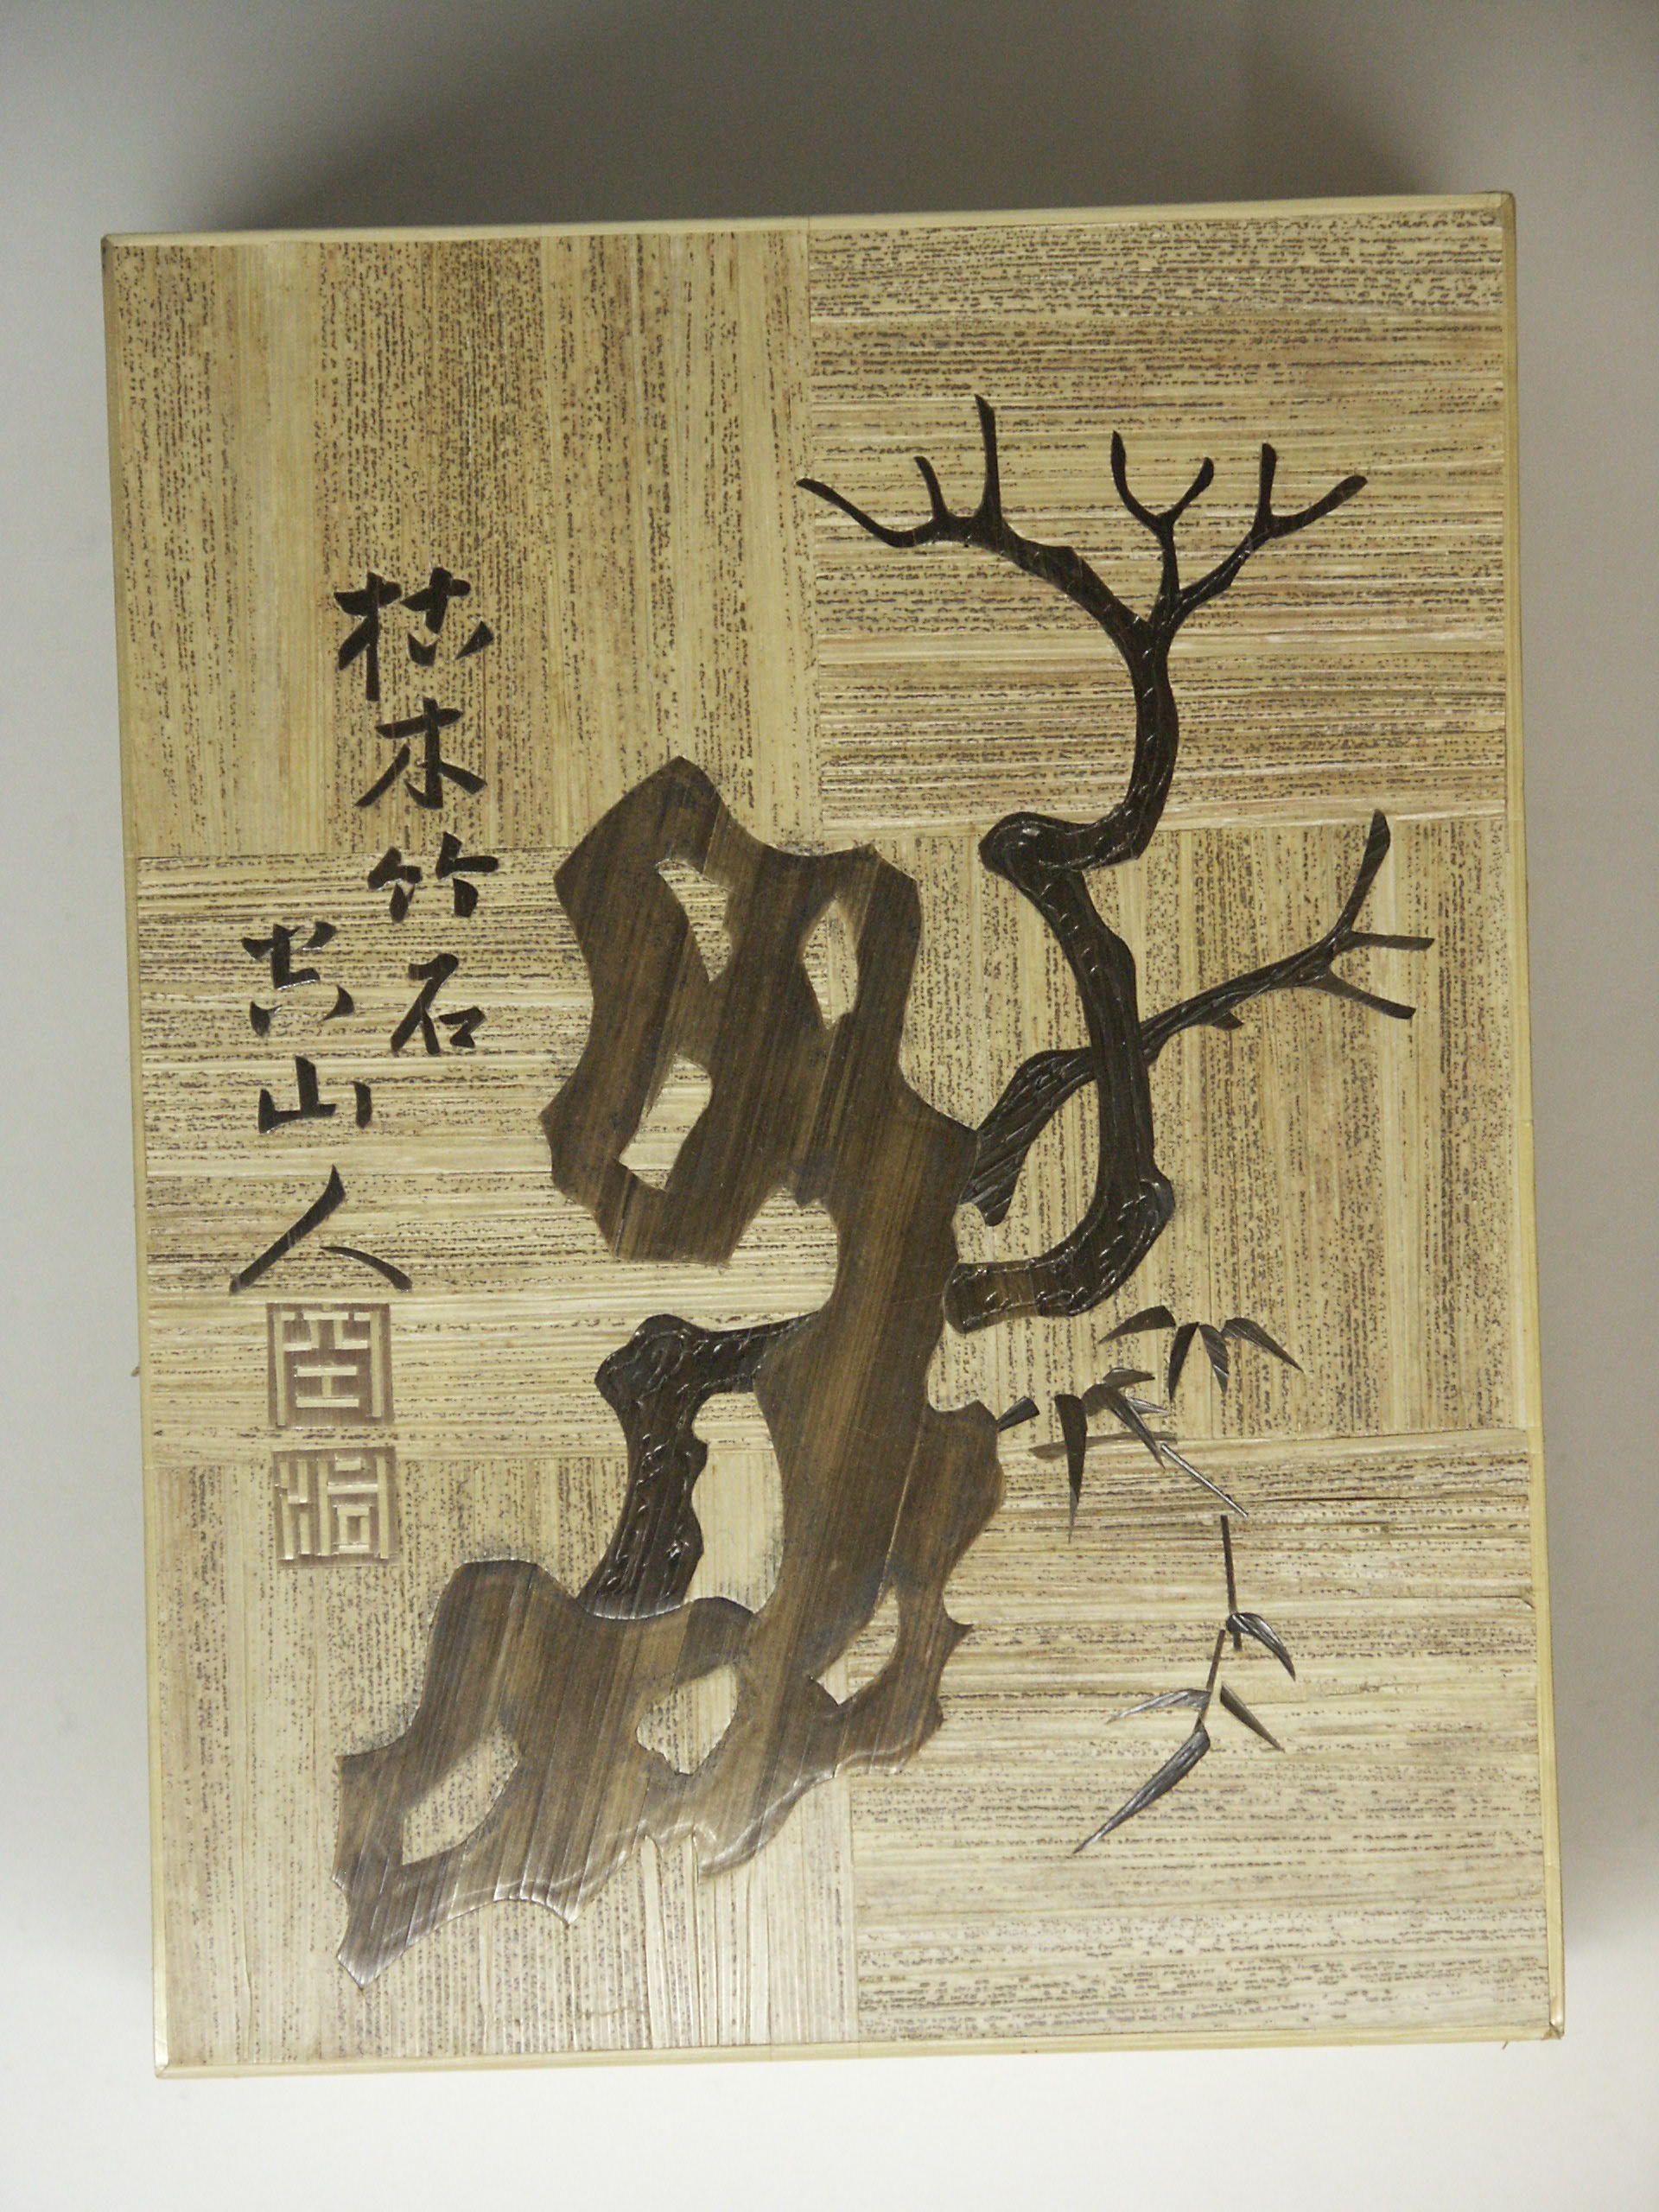 枯木竹石
山人